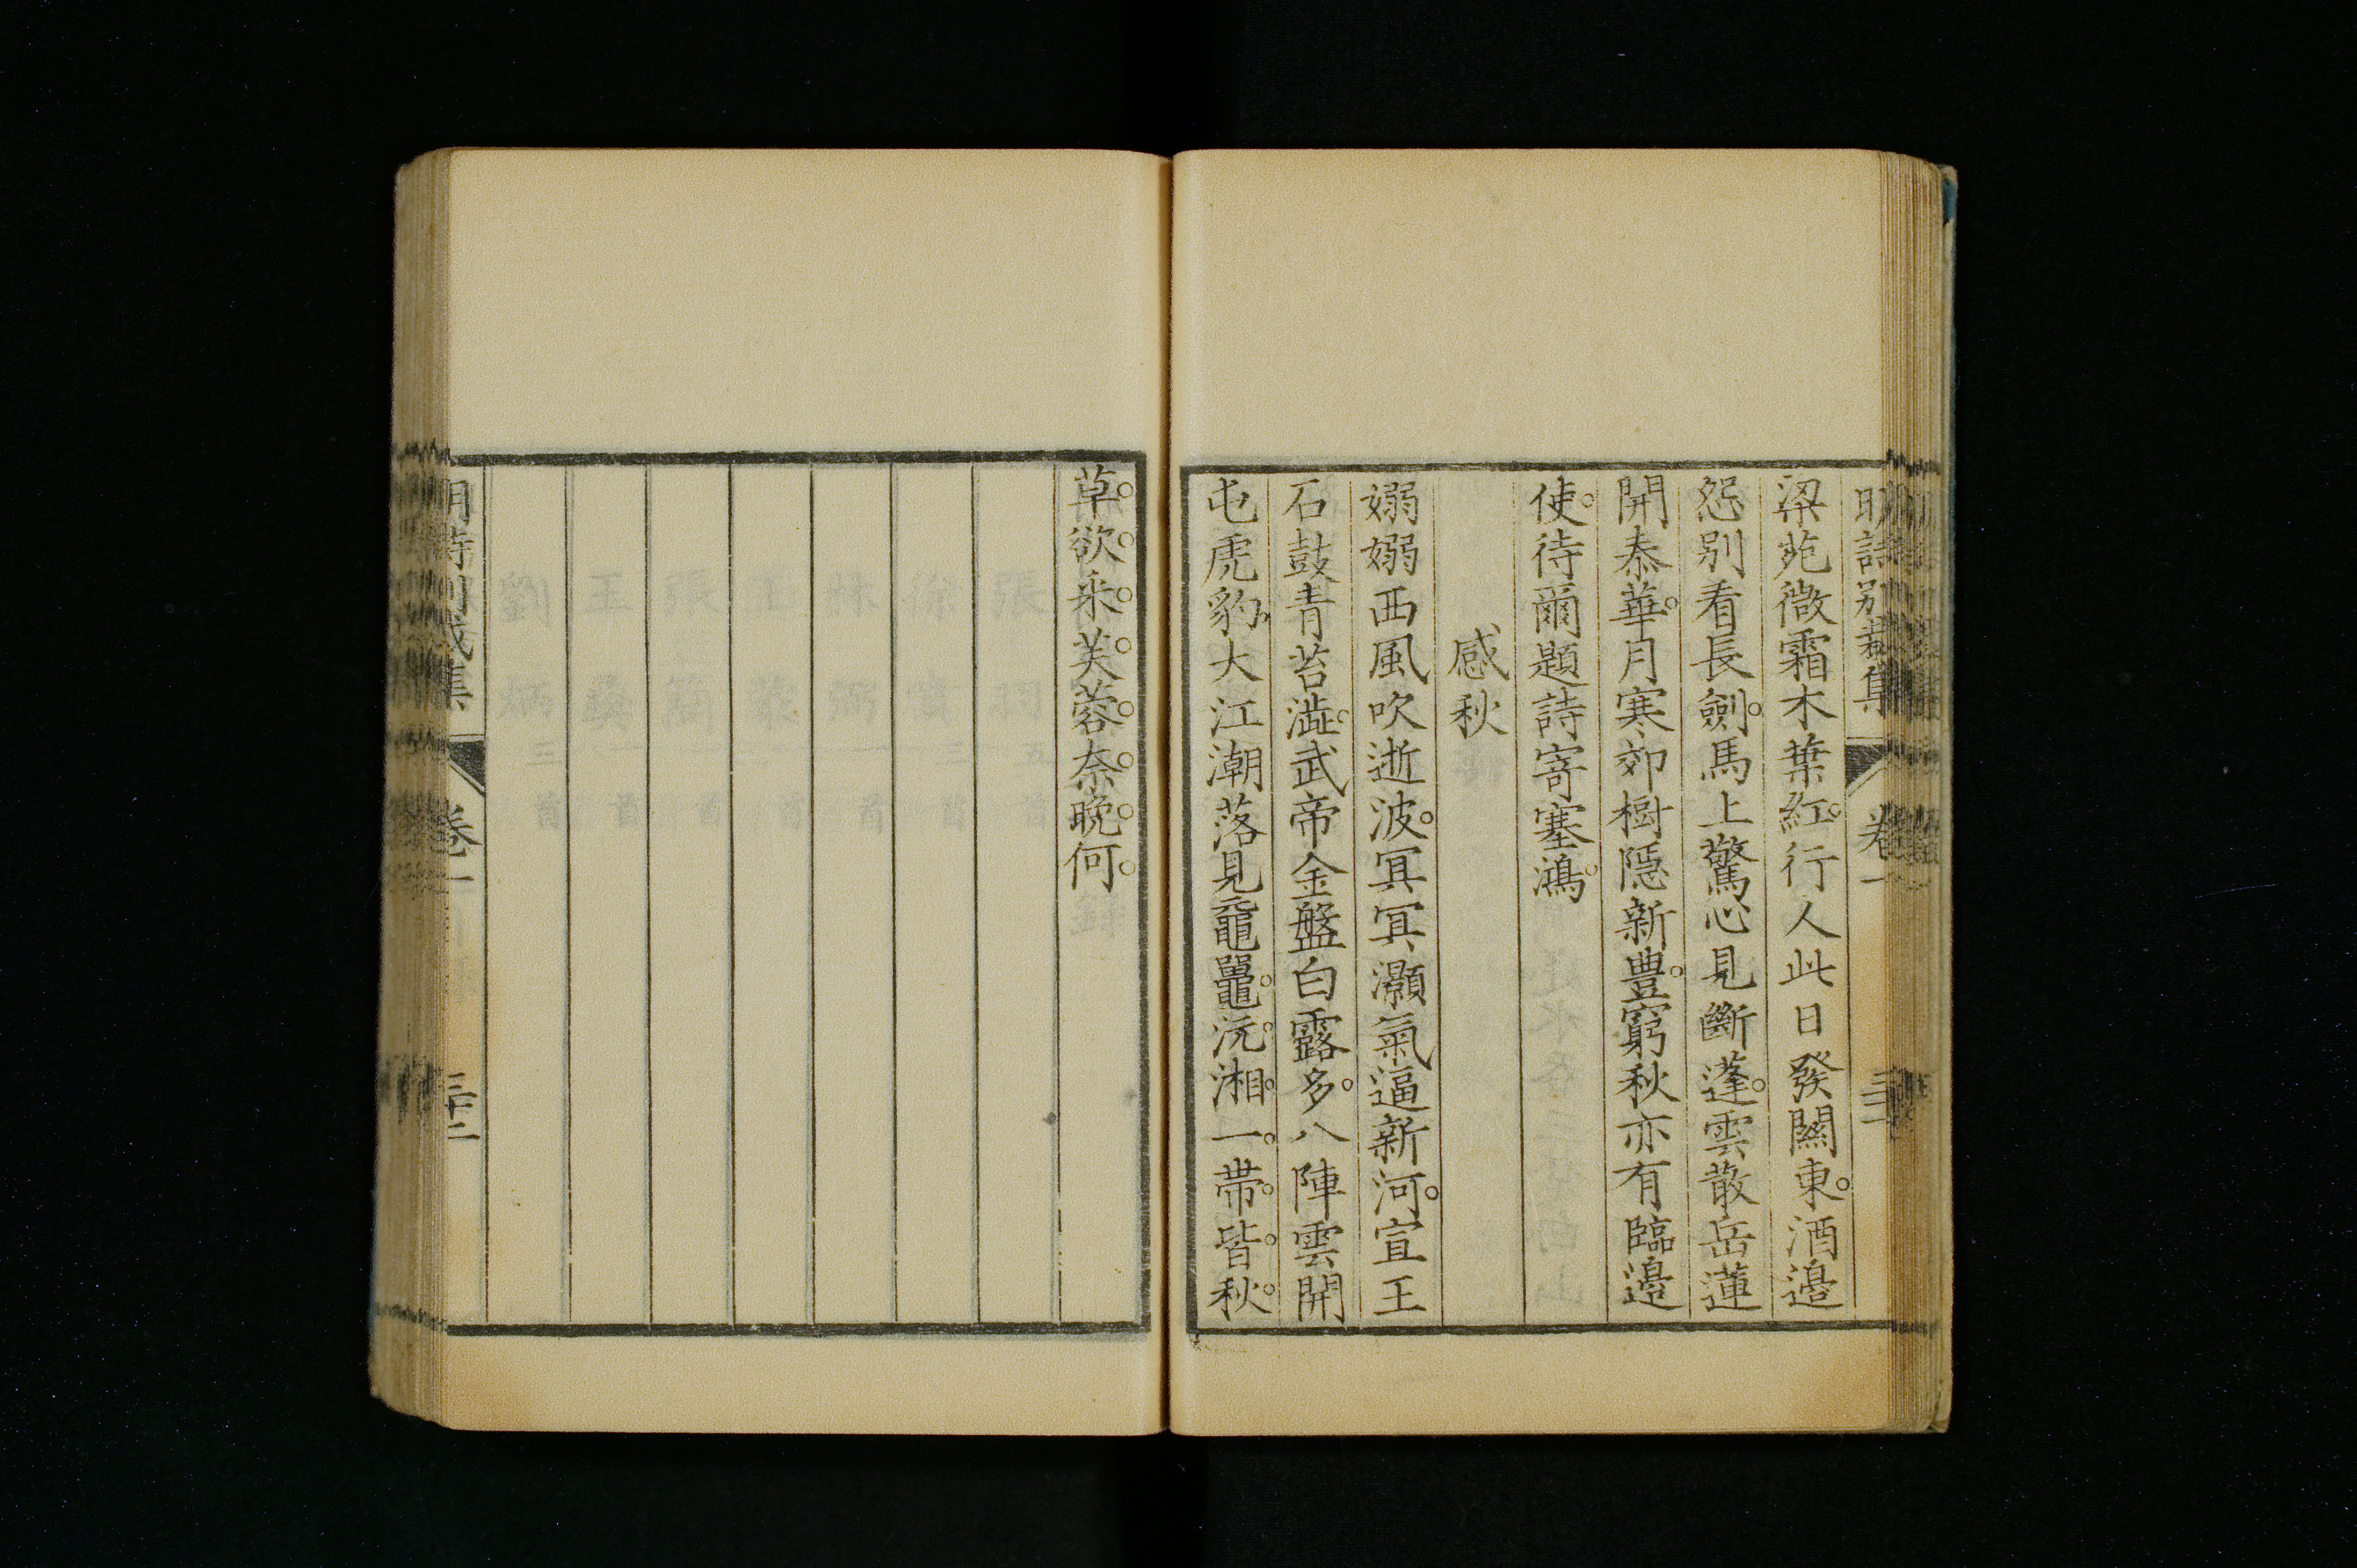 明詩別裁集 卷一
梁苑微霜木葉紅行人此日發關東酒邊
怨别看長劍馬上驚心見斷蓬雲散岳蓮
開泰華月寒郊樹隱新豊窮秋亦有臨邊
使待爾題詩寄塞鴻
感秋
嫋嫋西風吹逝波冥冥灝氣逼新河宣王
石鼓青苔澁武帝金盤白露多八陣雲開
屯虎豹大江潮落見黿鼉沅湘一帶皆秋
草欲采芙蓉奈晚何
明詩別裁集 卷一 三十二